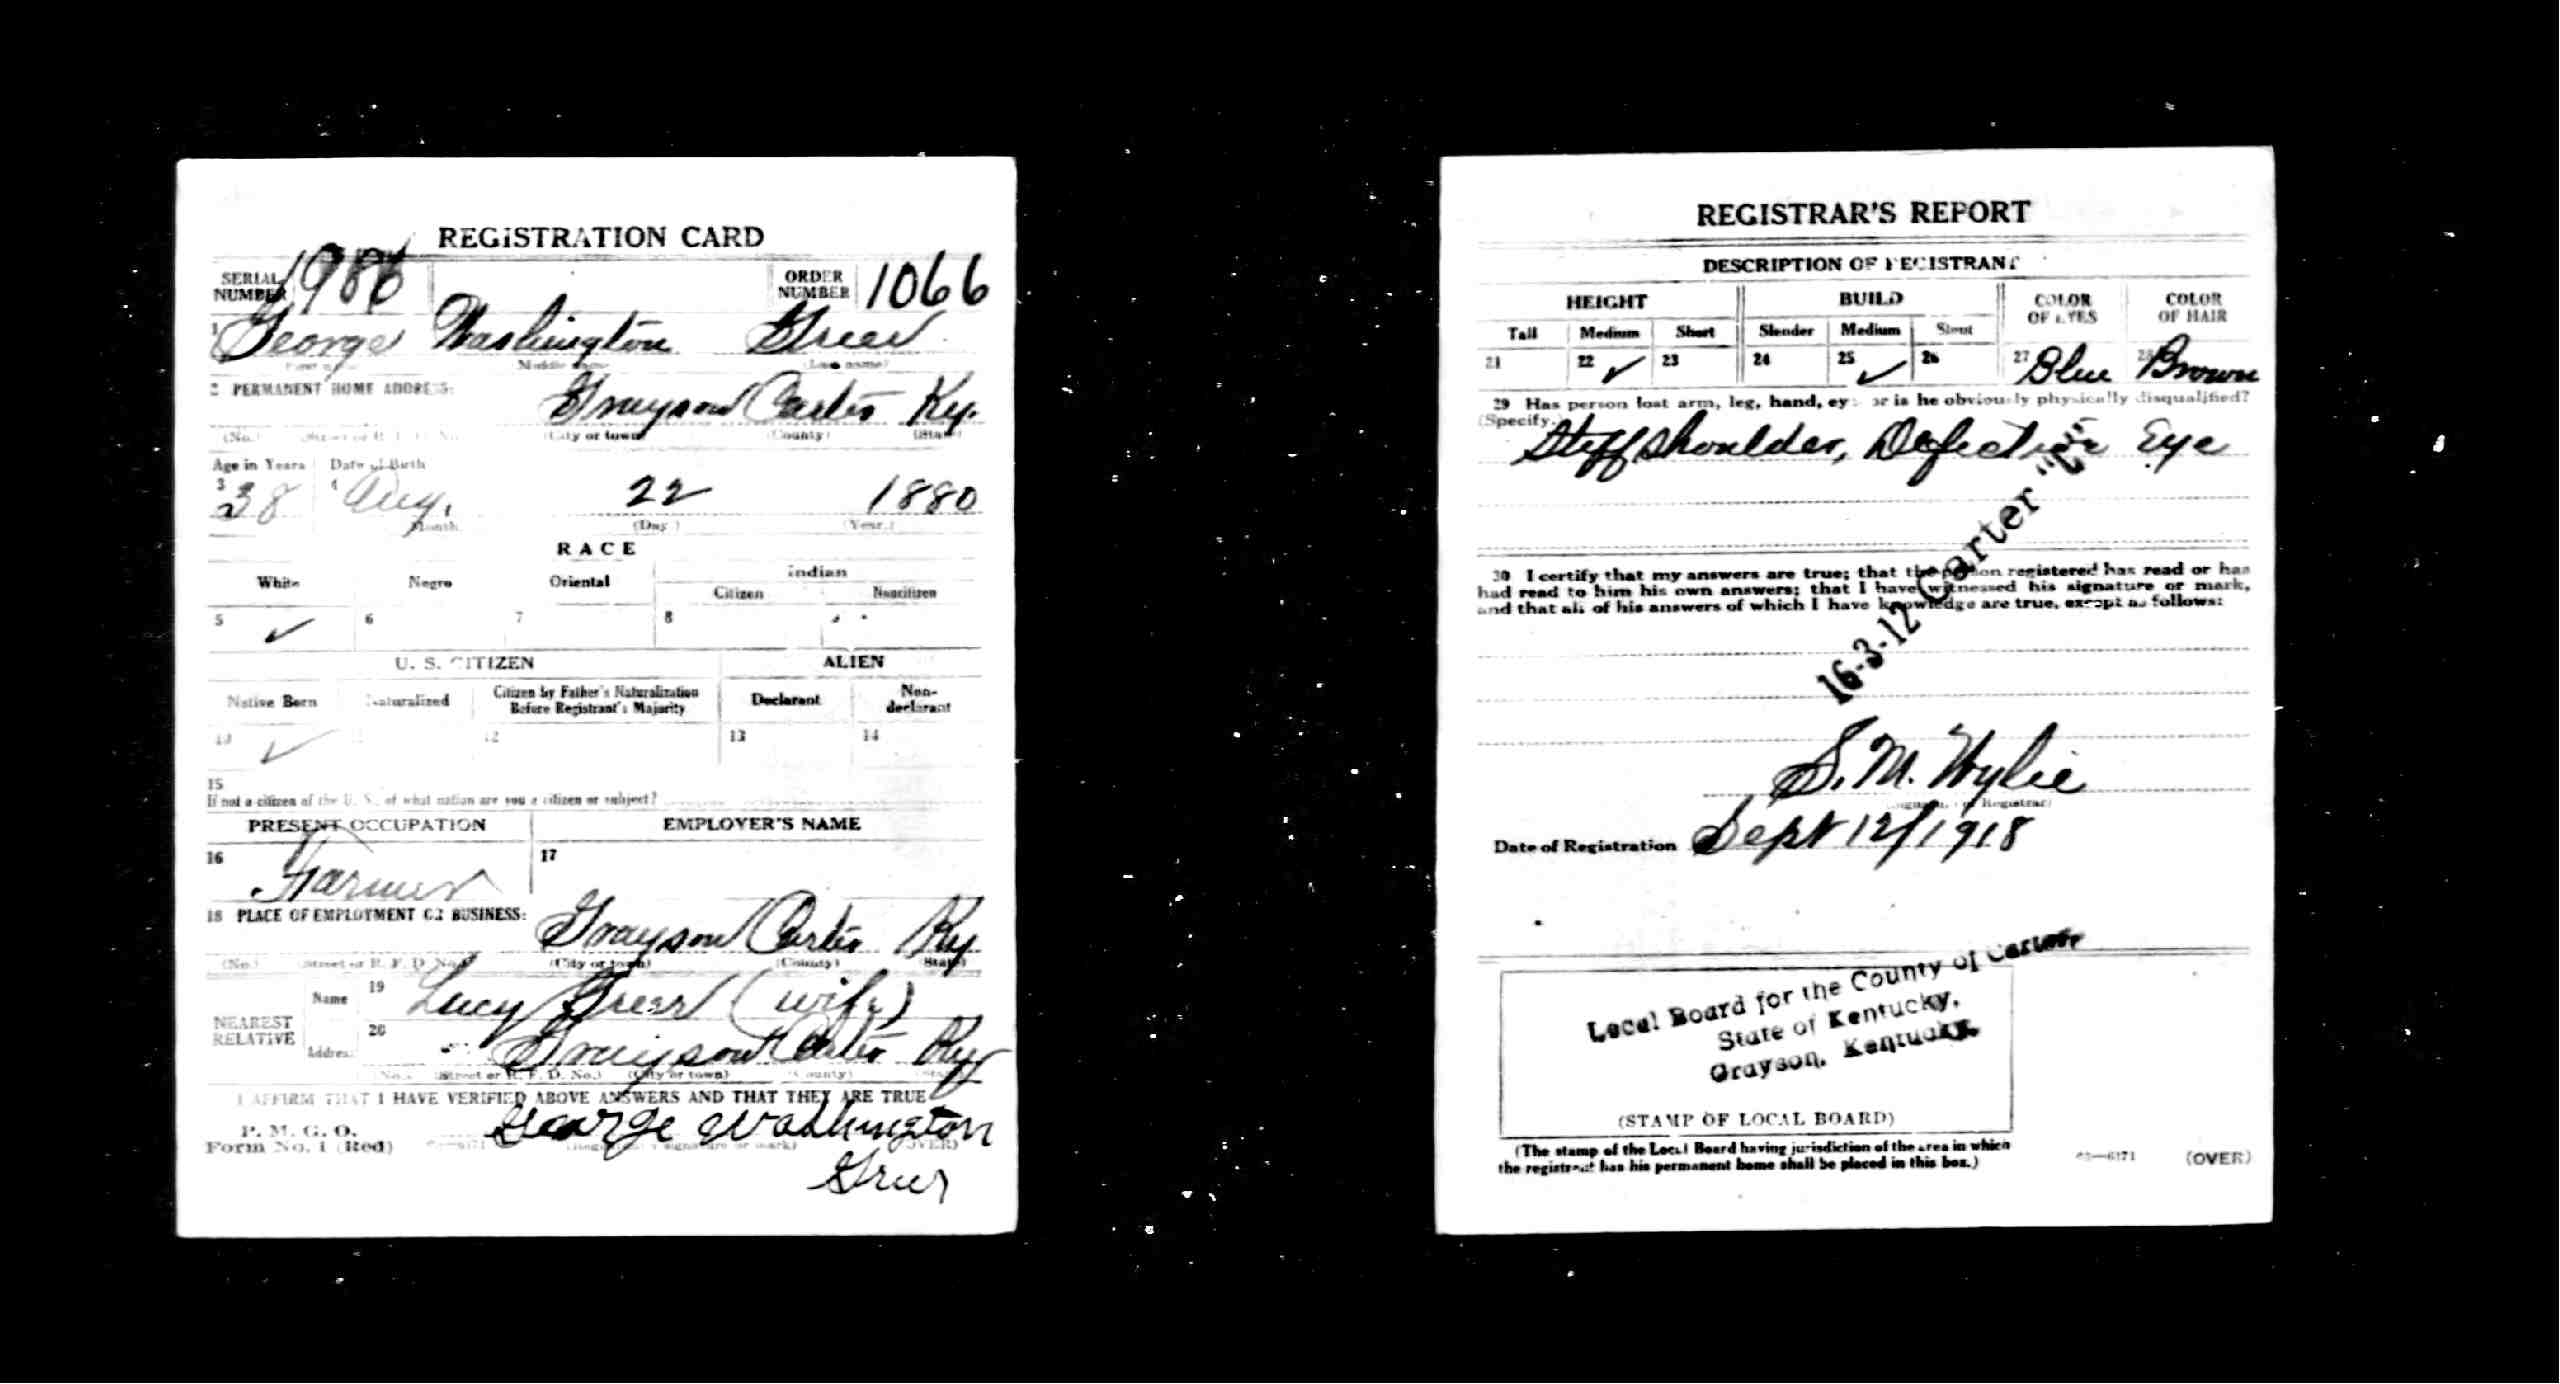 REGISTRATION CARD
SERIAL NUMBER 1986 ORDER NUMBER 1066
1 George Washington Greer
(First name) (Middle name) (Last name)
2 PERMANENT HOME ADDRESS:
Grayson Carter Ky.
(No.) (Street or R. F. D. No.) (City or town) (County) (State)
Age in Years Date of Birth
3 38 4 Aug. 22 1880
(Month.) (Day.) (Year.)
RACE
White Negro Oriental Indian
Citizen Noncitizen
5 ✓ 6 7 8
U. S. CITIZEN ALIEN
Native Born Naturalized Citizen by Father's Naturalization Before Registrant's Majority Declarant Non-declarant
10 ✓ 11 12 13 14
15
If not a citizen of the U. S., of what nation are you a citizen or subject?
PRESENT OCCUPATION EMPLOYER'S NAME
16 Farmer 17
18 PLACE OF EMPLOYMENT OR BUSINESS:
Grayson Carter Ky.
(No.) (Street or R. F. D. No.) (City or town) (County) (State)
NEAREST RELATIVE Name 19 Lucy Greer (wife)
Address 20 Grayson Carter Ky
(No.) (Street or R. F. D. No.) (City or town) (County) (State)
I AFFIRM THAT I HAVE VERIFIED ABOVE ANSWERS AND THAT THEY ARE TRUE
P. M. G. O.
Form No. 1 (Red) George Washington
(Registrant's signature or mark) (OVER)
Greer
REGISTRAR'S REPORT
DESCRIPTION OF REGISTRANT
HEIGHT BUILD COLOR OF EYES COLOR OF HAIR
Tall Medium Short Slender Medium Stout
21 22 ✓ 23 24 25 ✓ 26 27 Blue 28 Brown
29 Has person lost arm, leg, hand, eye, or is he obviously physically disqualified?
(Specify.)
Stiff Shoulder, Defective Eye
16-3-12 Carter "C"
30 I certify that my answers are true; that the person registered has read or has
had read to him his own answers; that I have witnessed his signature or mark,
and that all of his answers of which I have knowledge are true, except as follows:
S. M. Wylie
(Signature of Registrar)
Date of Registration Sept 12/1918
Local Board for the County of Carter,
State of Kentucky,
Grayson, Kentucky.
(STAMP OF LOCAL BOARD)
(The stamp of the Local Board having jurisdiction of the area in which
the registrant has his permanent home shall be placed in this box.)
03—6171 (OVER)